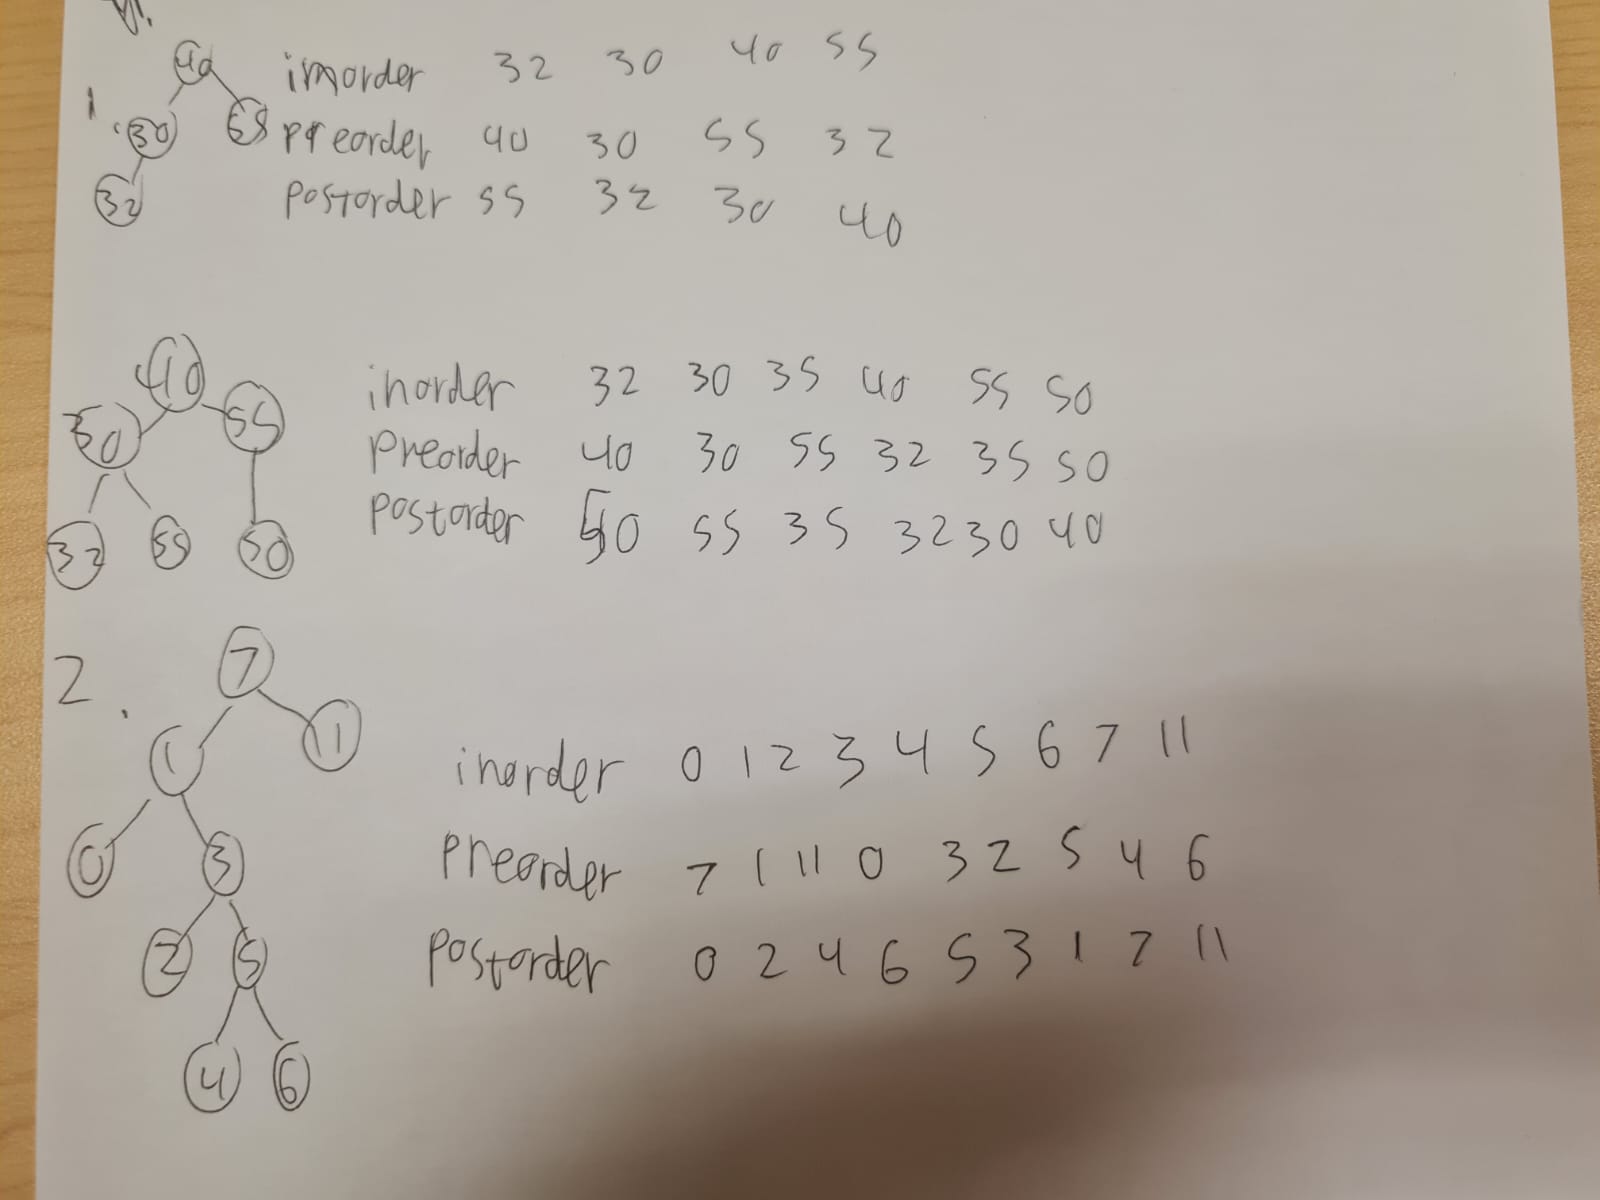 1.
40
30
55
32
inorder 32 30 40 55
preorder 40 30 55 32
postorder 55 32 30 40
40
30
55
32
50
inorder 32 30 35 40 55 50
preorder 40 30 55 32 35 50
postorder 50 55 35 32 30 40
2.
7
1
11
0
3
2
5
4
6
inorder 0 1 2 3 4 5 6 7 11
preorder 7 1 11 0 3 2 5 4 6
postorder 0 2 4 6 5 3 1 7 11